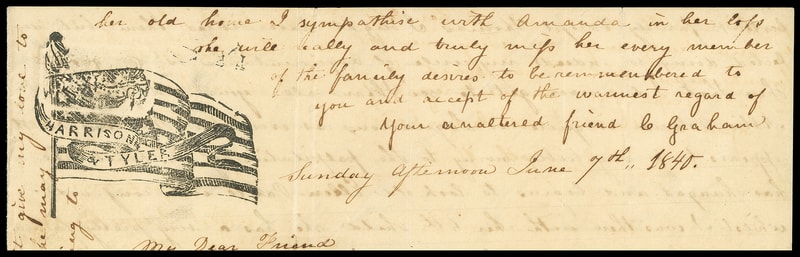 her old home I sympathise with Amanda in her loss
she will really and truly miss her every member
of the family desires to be remembered to
you and accept of the warmest regard of
Your unaltered friend C Graham
Sunday Afternoon June 7th, 1840.
HARRISON
& TYLER
My Dear Friend
give my love to
he may
ing to